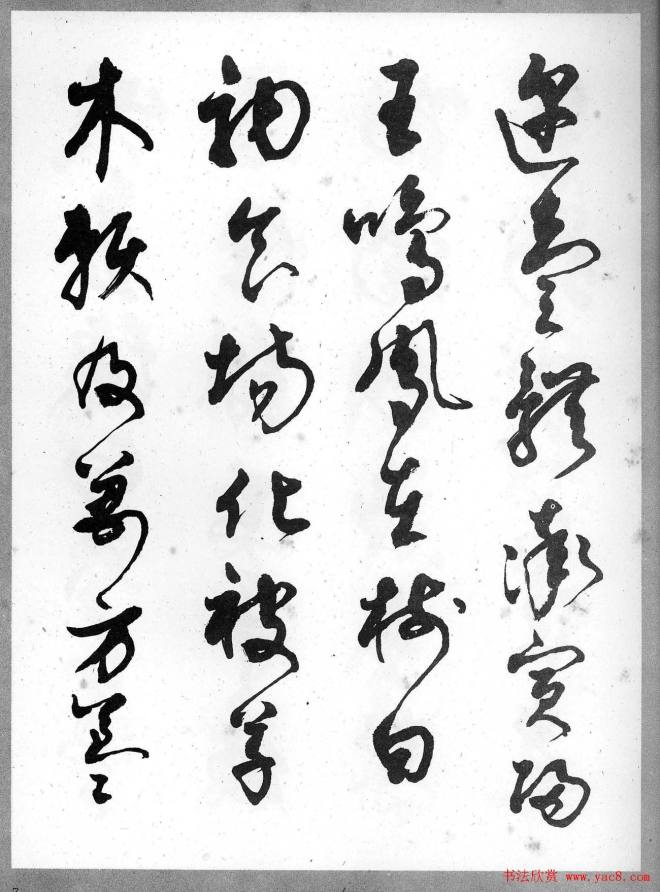 迩壹體率賓歸
王鳴鳳在樹白
駒食場化被草
木賴及萬方蓋此
书法欣赏 www.yac8.com